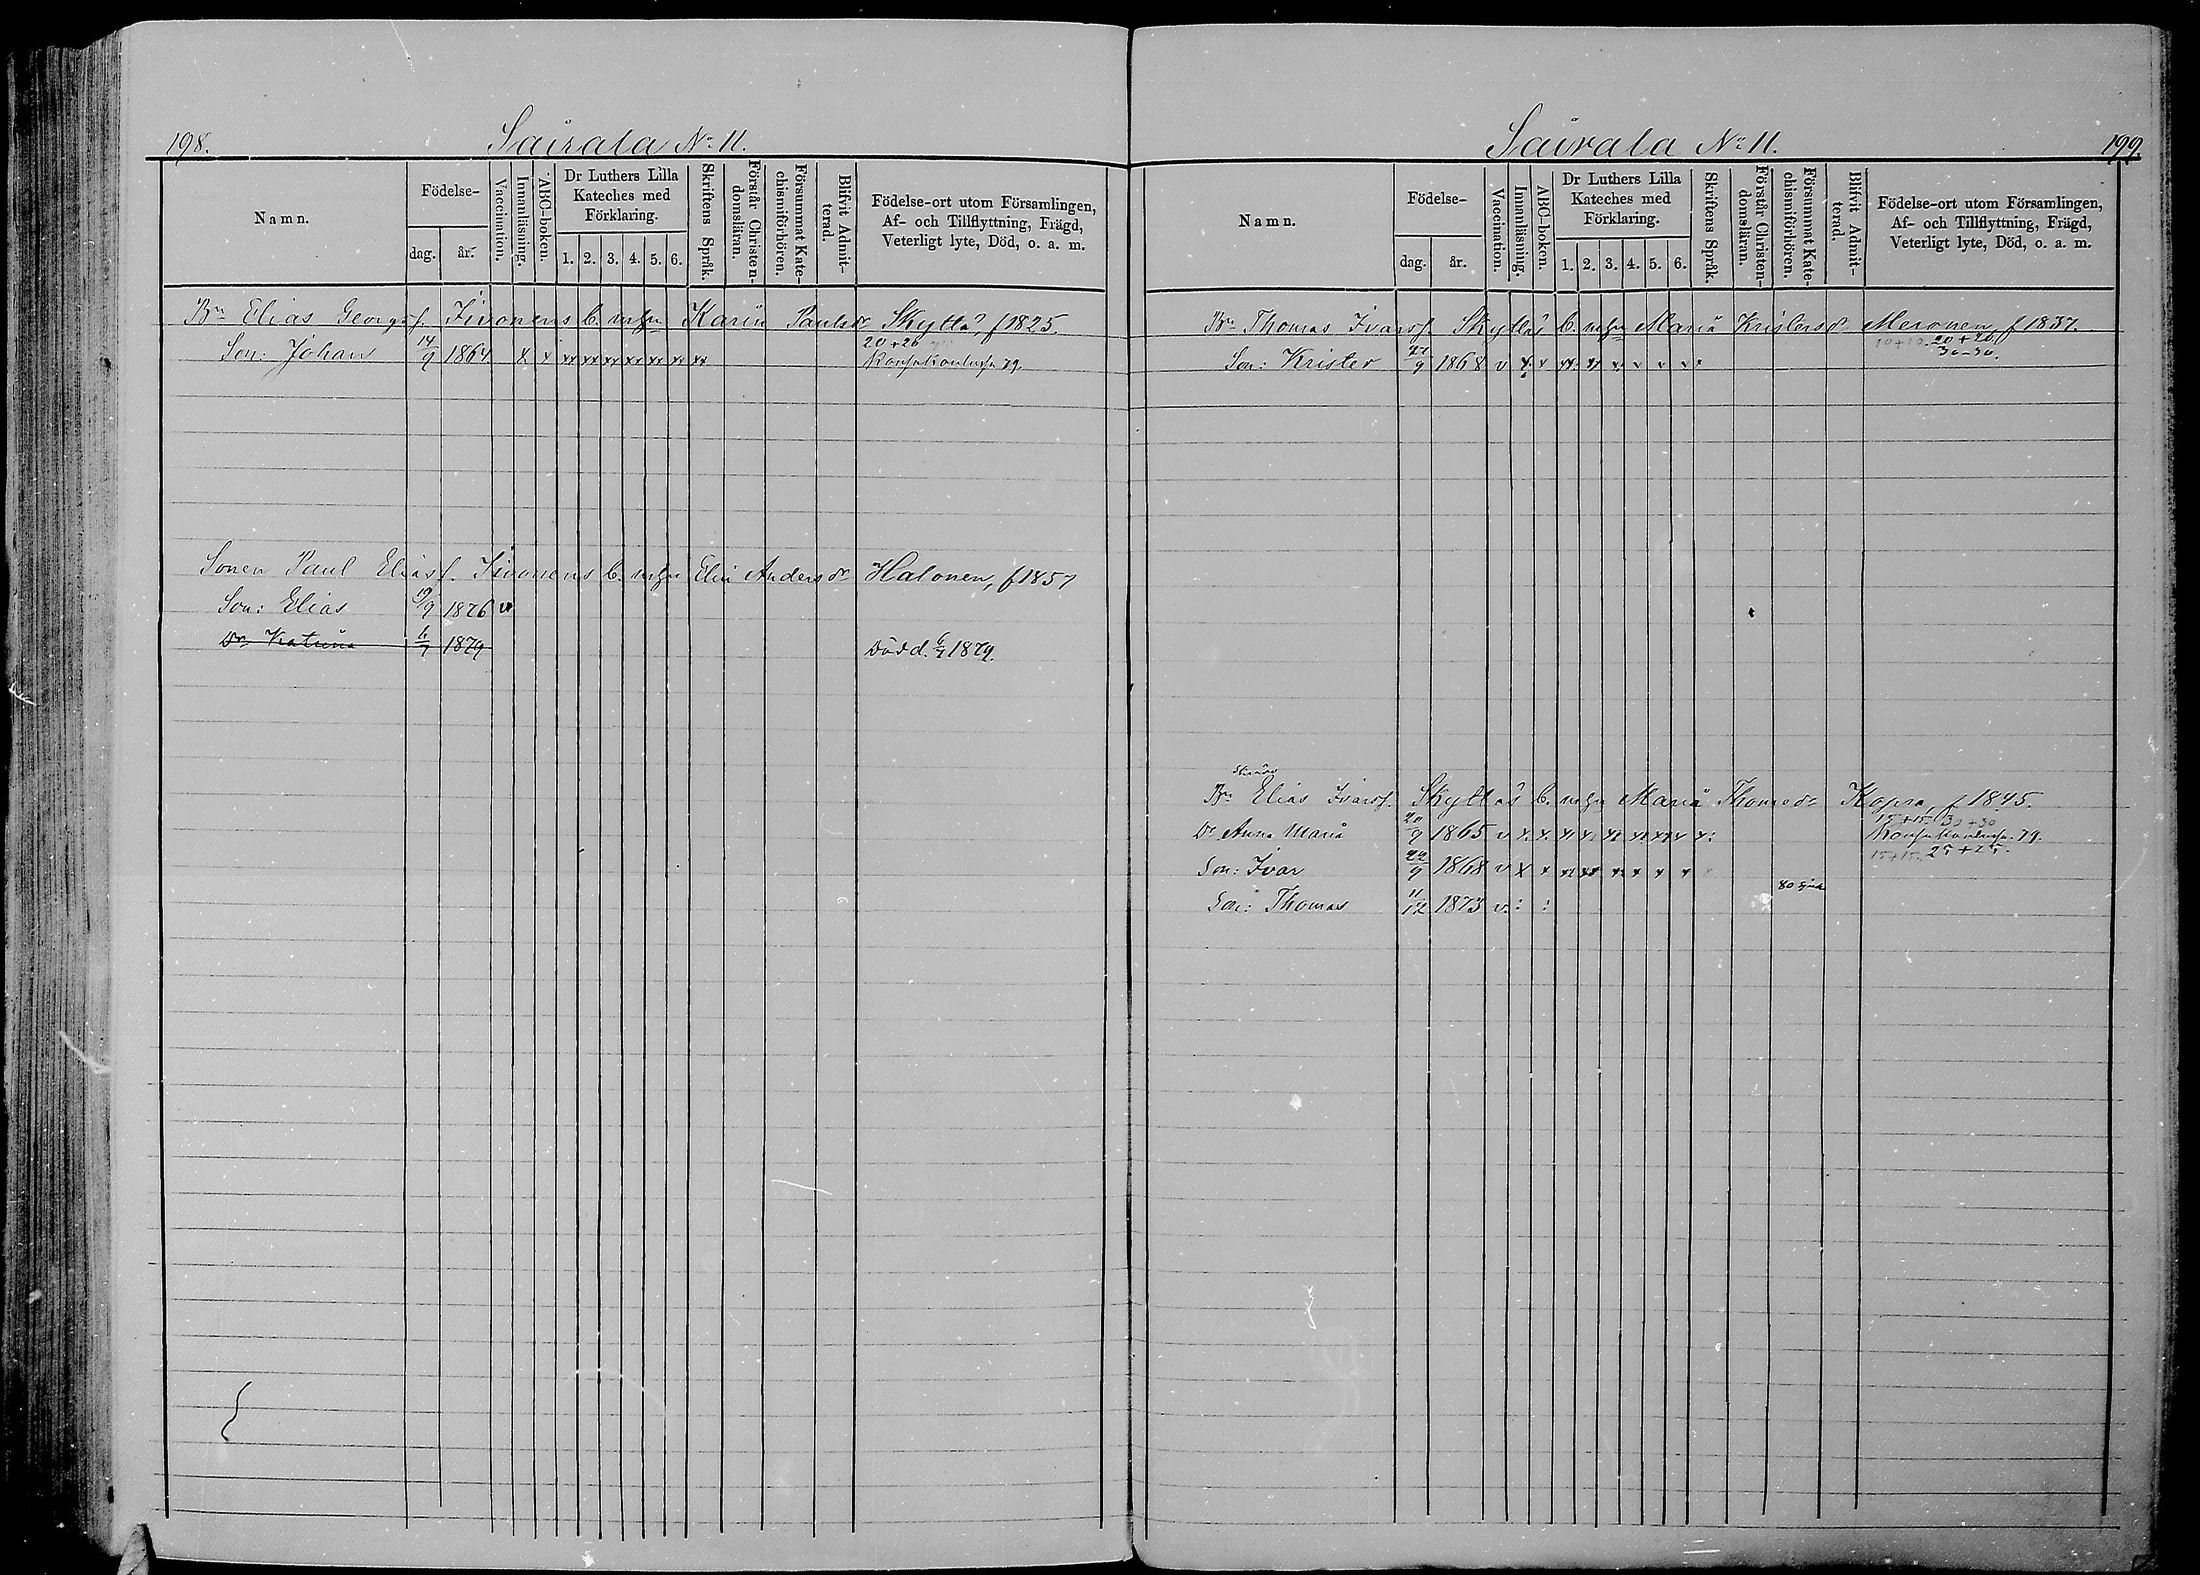 198.
Sairala No 11.
Namn.
Födelse-
dag.
år.
Vaccination.
Innanläsning.
ABC-boken.
Dr Luthers Lilla Kateches med Förklaring.
1. 2. 3. 4. 5. 6.
Skriftens Språk.
Förstår Christen-domsläran.
Försummat Kate-chismiförhören.
Blifvit Admit-terad.
Födelse-ort utom Församlingen,
Af- och Tillflyttning, Frägd,
Veterligt lyte, Död, o. a. m.
Bn Elias Georgsf. Iivonens b. m. hu Karin Paulsdr Skyttä, f 1825.
20+26
Son: Johan 14/9 1864 x x xx xx xx xx xx x xx
79.
Sonen Paul Eliasf. Iivonens b. m. hu Elin Andersdr Halonen, f 1857
Son: Elias 19/9 1876 v
Dr Katrina 6/7 1879 Död d. 6/7 1879.
Sairala No 11.
199.
Namn.
Födelse-
dag.
år.
Vaccination.
Innanläsning.
ABC-boken.
Dr Luthers Lilla Kateches med Förklaring.
1. 2. 3. 4. 5. 6.
Skriftens Språk.
Förstår Christen-domsläran.
Försummat Kate-chismiförhören.
Blifvit Admit-terad.
Födelse-ort utom Församlingen,
Af- och Tillflyttning, Frägd,
Veterligt lyte, Död, o. a. m.
Bn Thomas Ivarsf. Skyttäs b. m. hu Maria Kristersdr Meronen, f 1837.
10+10. 20+20.
30-30.
Son: Krister 27/9 1868 v x x xx xx x x x x
Bn Elias Ivarsf. Skyttäs b. m. hu Maria Thomedr Kopra, f 1845.
15+15. 30+30
Dr Anna Maria 20/9 1865 v x x x x x x x x x 79.
15+15. 25+25.
Son: Ivar 22/9 1868 v x x xx xx x x x x
80
Son: Thomas 11/12 1873 v : :